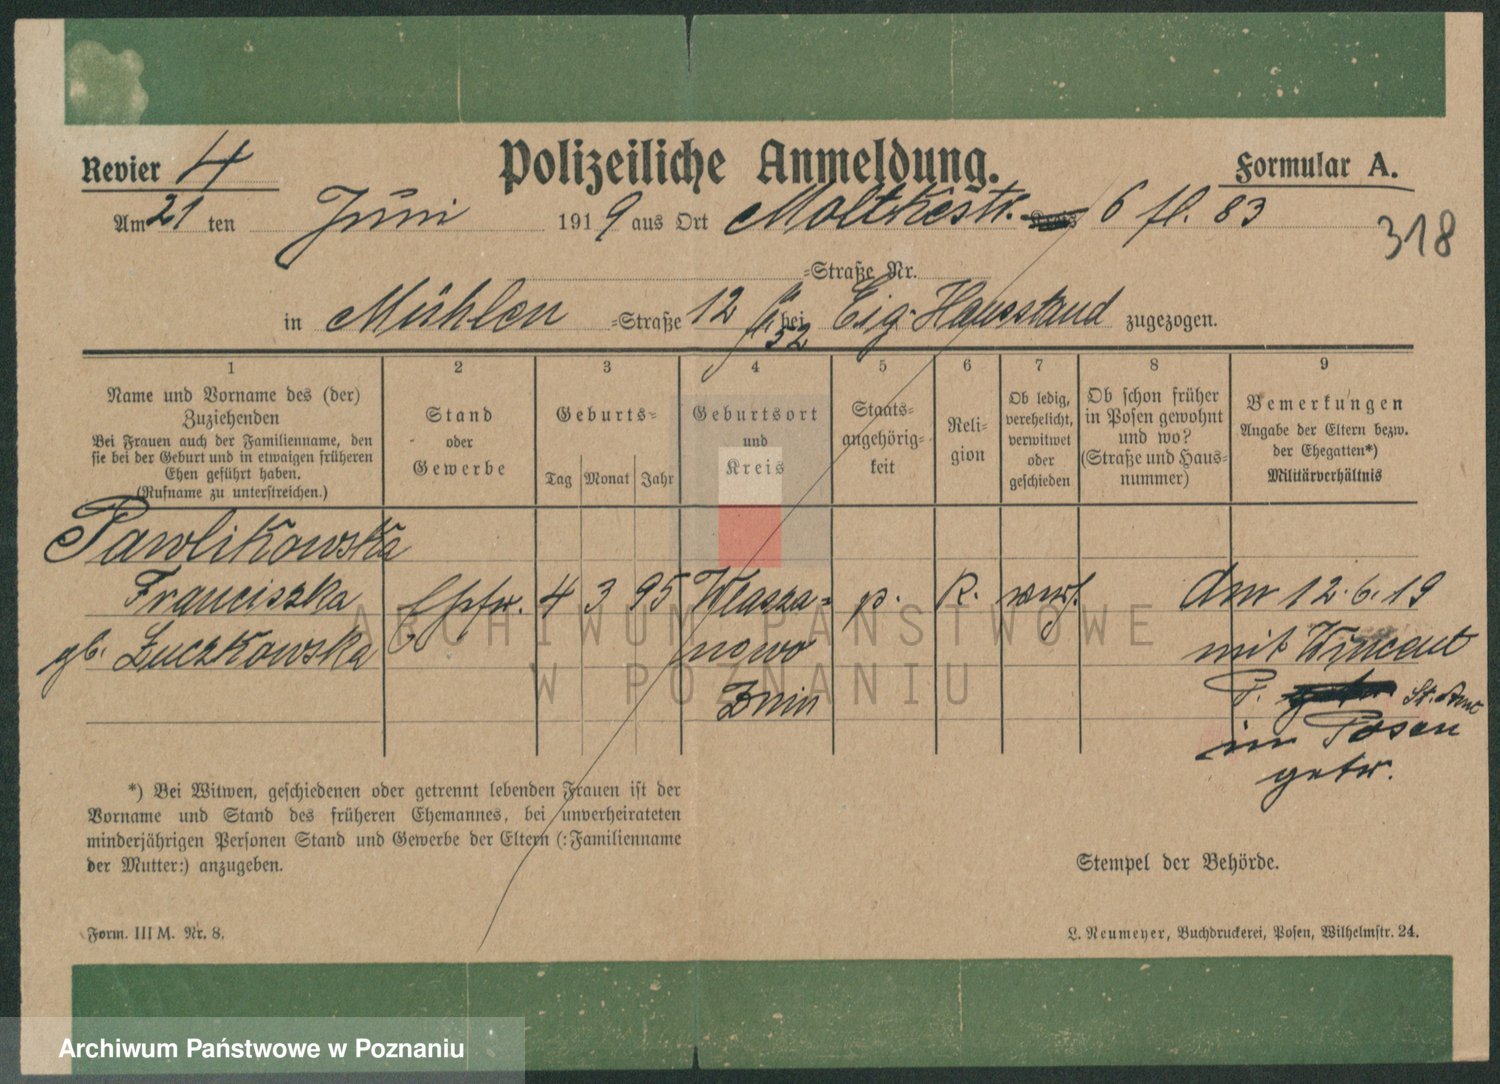 Revier 4
Polizeiliche Anmeldung.
Formular A.
Am 21 ten Juni 1919 aus Ort Moltkestr. Kreis 6 fl. 83
318
-Straße Nr.
in Mühlen -Straße 12 bei Eig. Hausstand zugezogen.
52
1 2 3 4 5 6 7 8 9
Name und Vorname des (der)
Zuziehenden
Bei Frauen auch der Familienname, den
sie bei der Geburt und in etwaigen früheren
Ehen geführt haben.
(Rufname zu unterstreichen.)
Stand
oder
Gewerbe
Geburts-
Tag Monat Jahr
Geburtsort
und
Kreis
Staats-
angehörig-
keit
Reli-
gion
Ob ledig,
verehelicht,
verwitwet
oder
geschieden
Ob schon früher
in Posen gewohnt
und wo?
(Straße und Haus-
nummer)
Bemerkungen
Angabe der Eltern bezw.
der Ehegatten*)
Militärverhältnis
Pawlikowska
Franciszka 4 3 95 Własza- p. K. verh. Am 12.6.19
gb. Łuczkowska nowo mit Vincent
Znin P. St. Amt
in Posen
getr.
ARCHIWUM PAŃSTWOWE
W POZNANIU
*) Bei Witwen, geschiedenen oder getrennt lebenden Frauen ist der
Vorname und Stand des früheren Ehemannes, bei unverheirateten
minderjährigen Personen Stand und Gewerbe der Eltern (:Familienname
der Mutter:) anzugeben.
Stempel der Behörde.
Form. III M. Nr. 8.
L. Neumeyer, Buchdruckerei, Posen, Wilhelmstr. 24.
Archiwum Państwowe w Poznaniu